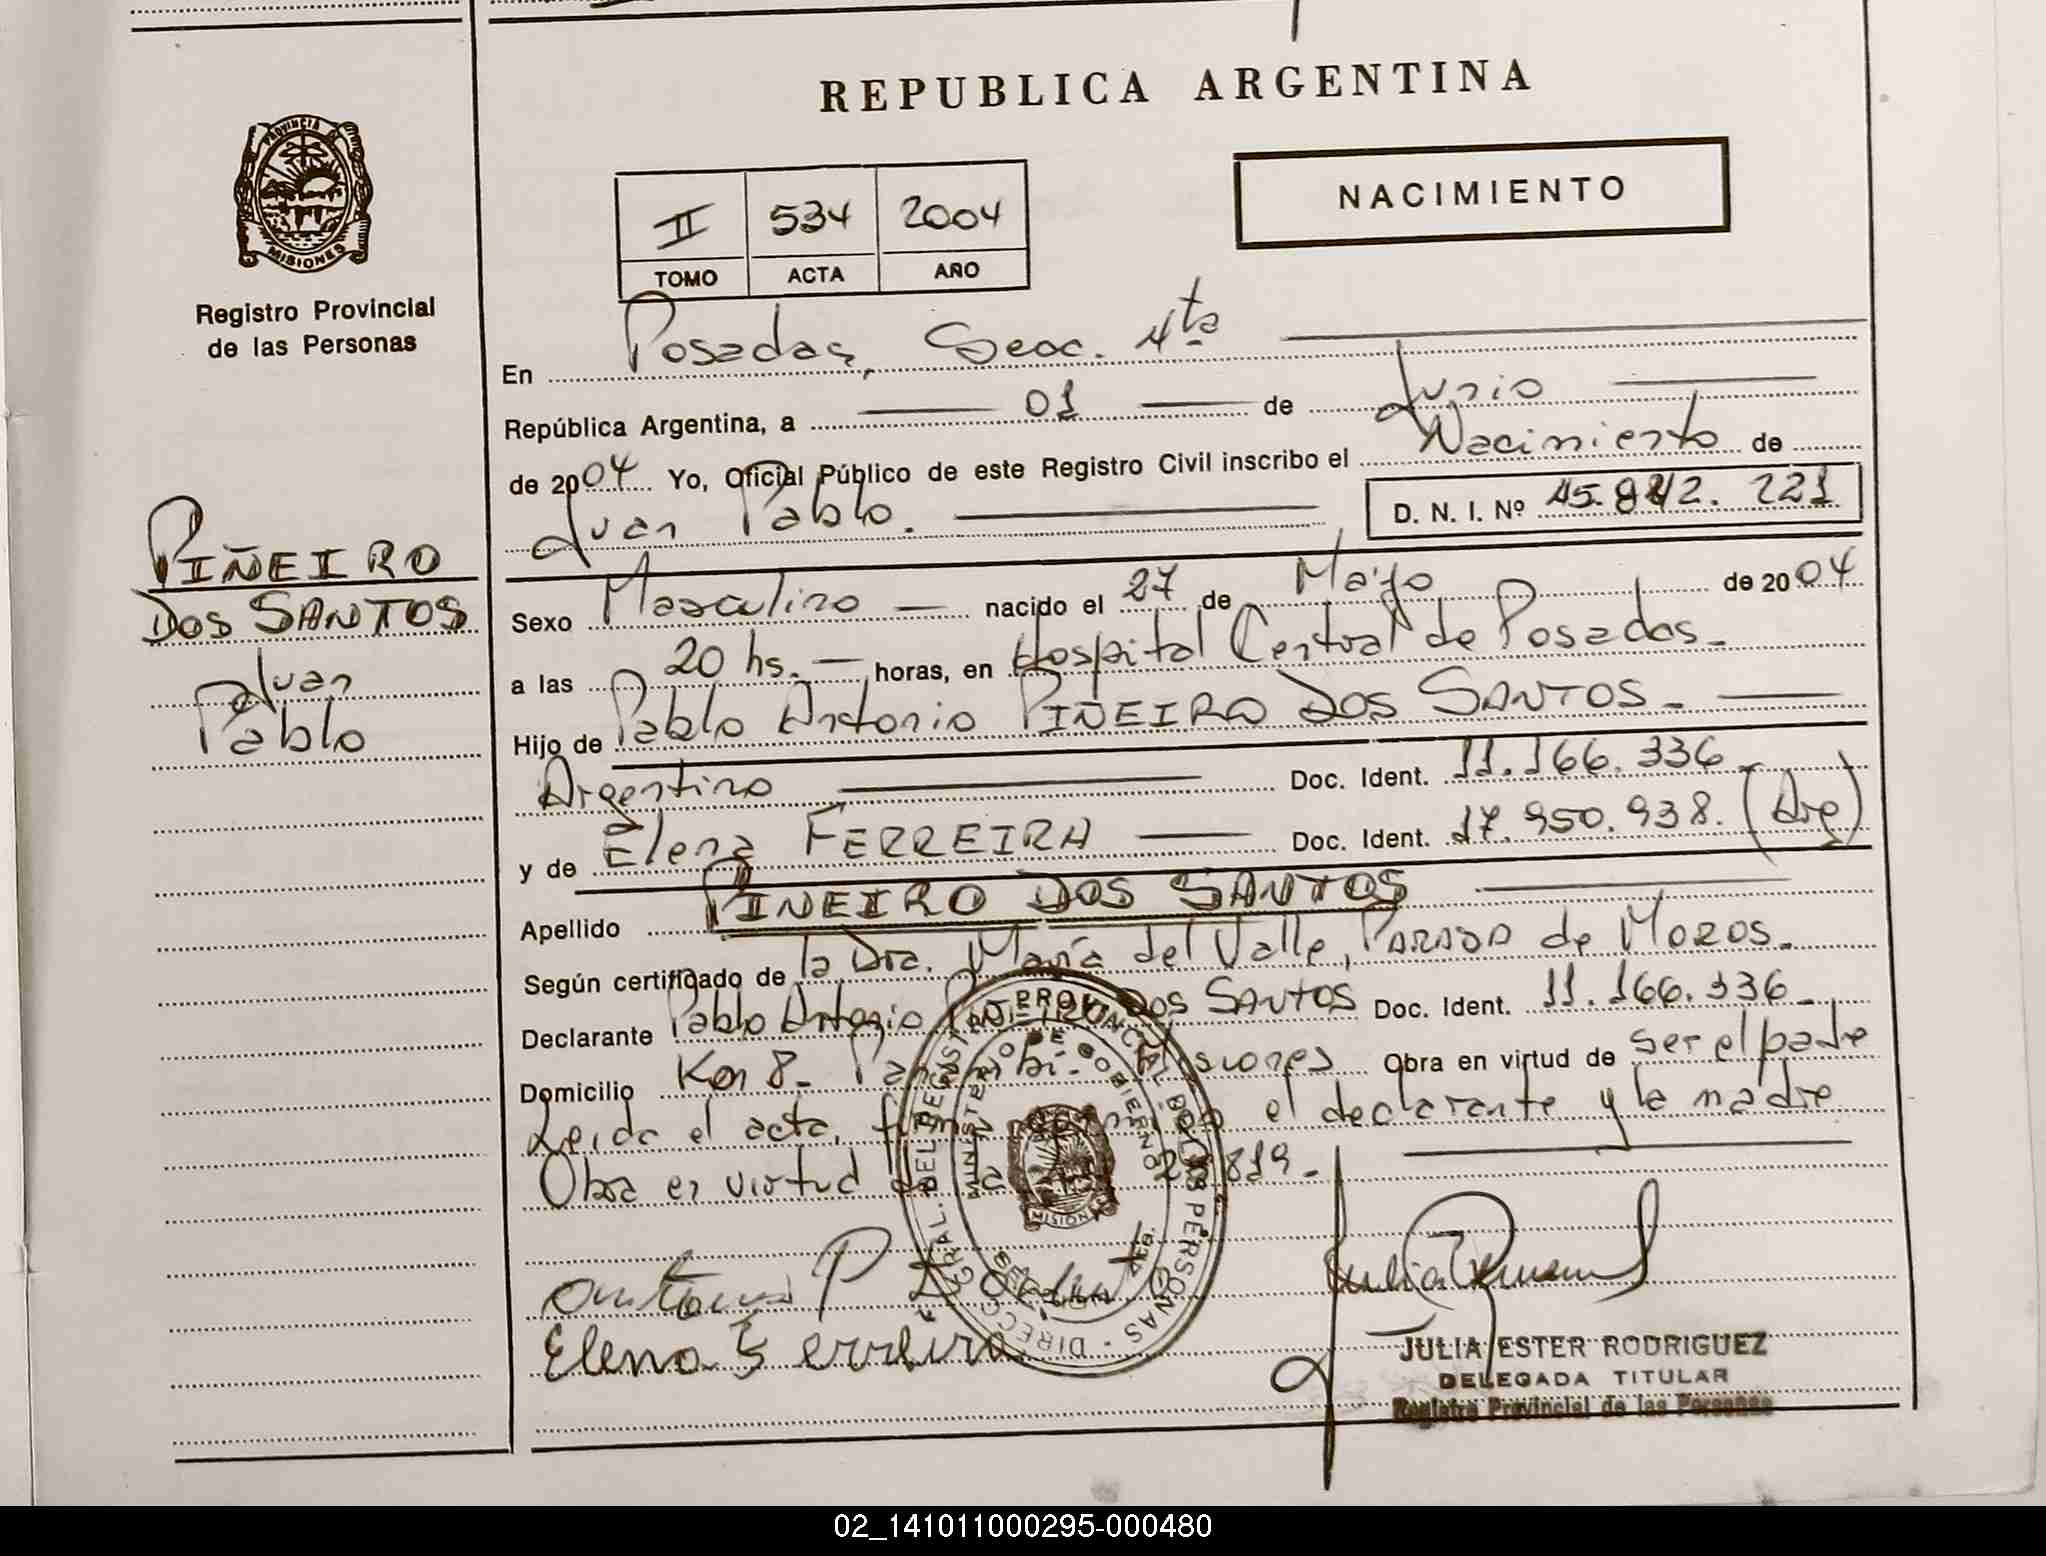 REPUBLICA ARGENTINA
NACIMIENTO
II 534 2004
TOMO ACTA AÑO
PROVINCIA DE
MISIONES
Registro Provincial
de las Personas
PIÑEIRO
DOS SANTOS
Juan
Pablo
En Posadas, Secc. 4ta
República Argentina, a 01 de Junio
de 2004 Yo, Oficial Público de este Registro Civil inscribo el Nacimiento de
Juan Pablo. D. N. I. Nº 45.842.221
Sexo Masculino nacido el 27 de Mayo de 2004
a las 20 hs. horas, en Hospital Central de Posadas.
Hijo de Pablo Antonio PIÑEIRO DOS SANTOS.
Argentino Doc. Ident. 11.166.336
y de Elena FERREIRA Doc. Ident. 17.950.938. (Arg)
Apellido PIÑEIRO DOS SANTOS
Según certificado de la Dra. María del Valle, PARADA de MOROS.
Declarante Pablo Antonio DOS SANTOS Doc. Ident. 11.166.336
Domicilio Km 8. Panambi. Misiones Obra en virtud de ser el padre
Leida el acta, el declarante y la madre
Obra en virtud 819.
DIRECC. GRAL. DEL REGISTRO PROVINCIAL DE LAS PERSONAS
MINISTERIO DE GOBIERNO
MISIONES
Elena Ferreira
JULIA ESTER RODRIGUEZ
DELEGADA TITULAR
Registro Provincial de las Personas
02_141011000295-000480